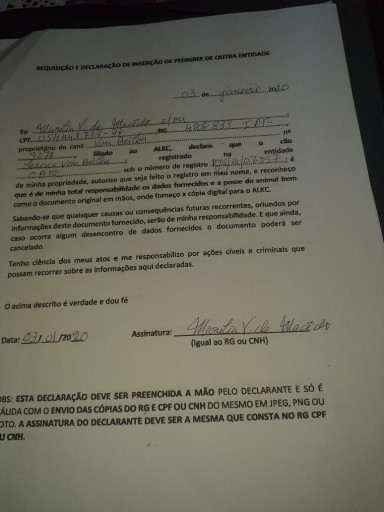 REQUISIÇÃO E DECLARAÇÃO DE INSERÇÃO DE PEDIGREE DE OUTRA ENTIDADE
03 de janeiro 2020
Eu Marilia V. de Macedo
CPF RG
proprietário do canil Von nº
filiado ao ALKC, declaro que o cão
Von registrado na entidade
sob o número de registro ; é
de minha propriedade, autorizo que seja feito o registro em meu nome, e reconheço
que é de minha total responsabilidade os dados fornecidos e a posse do animal bem
como o documento original em mãos, onde forneço a cópia digital para o ALKC.
Sabendo-se que quaisquer causas ou consequências futuras recorrentes, oriundos por
informações deste documento fornecido, serão de minha responsabilidade. E que ainda,
caso ocorra algum desencontro de dados fornecidos o documento poderá ser
cancelado.
Tenho ciência dos meus atos e me responsabilizo por ações cíveis e criminais que
possam recorrer sobre as informações aqui declaradas.
O acima descrito é verdade e dou fé
Data: 03/01/2020 Assinatura: Marilia V. de Macedo
(Igual ao RG ou CNH)
OBS: ESTA DECLARAÇÃO DEVE SER PREENCHIDA A MÃO PELO DECLARANTE E SÓ É
ÁLIDA COM O ENVIO DAS CÓPIAS DO RG E CPF OU CNH DO MESMO EM JPEG, PNG OU
OTO. A ASSINATURA DO DECLARANTE DEVE SER A MESMA QUE CONSTA NO RG CPF
U CNH.